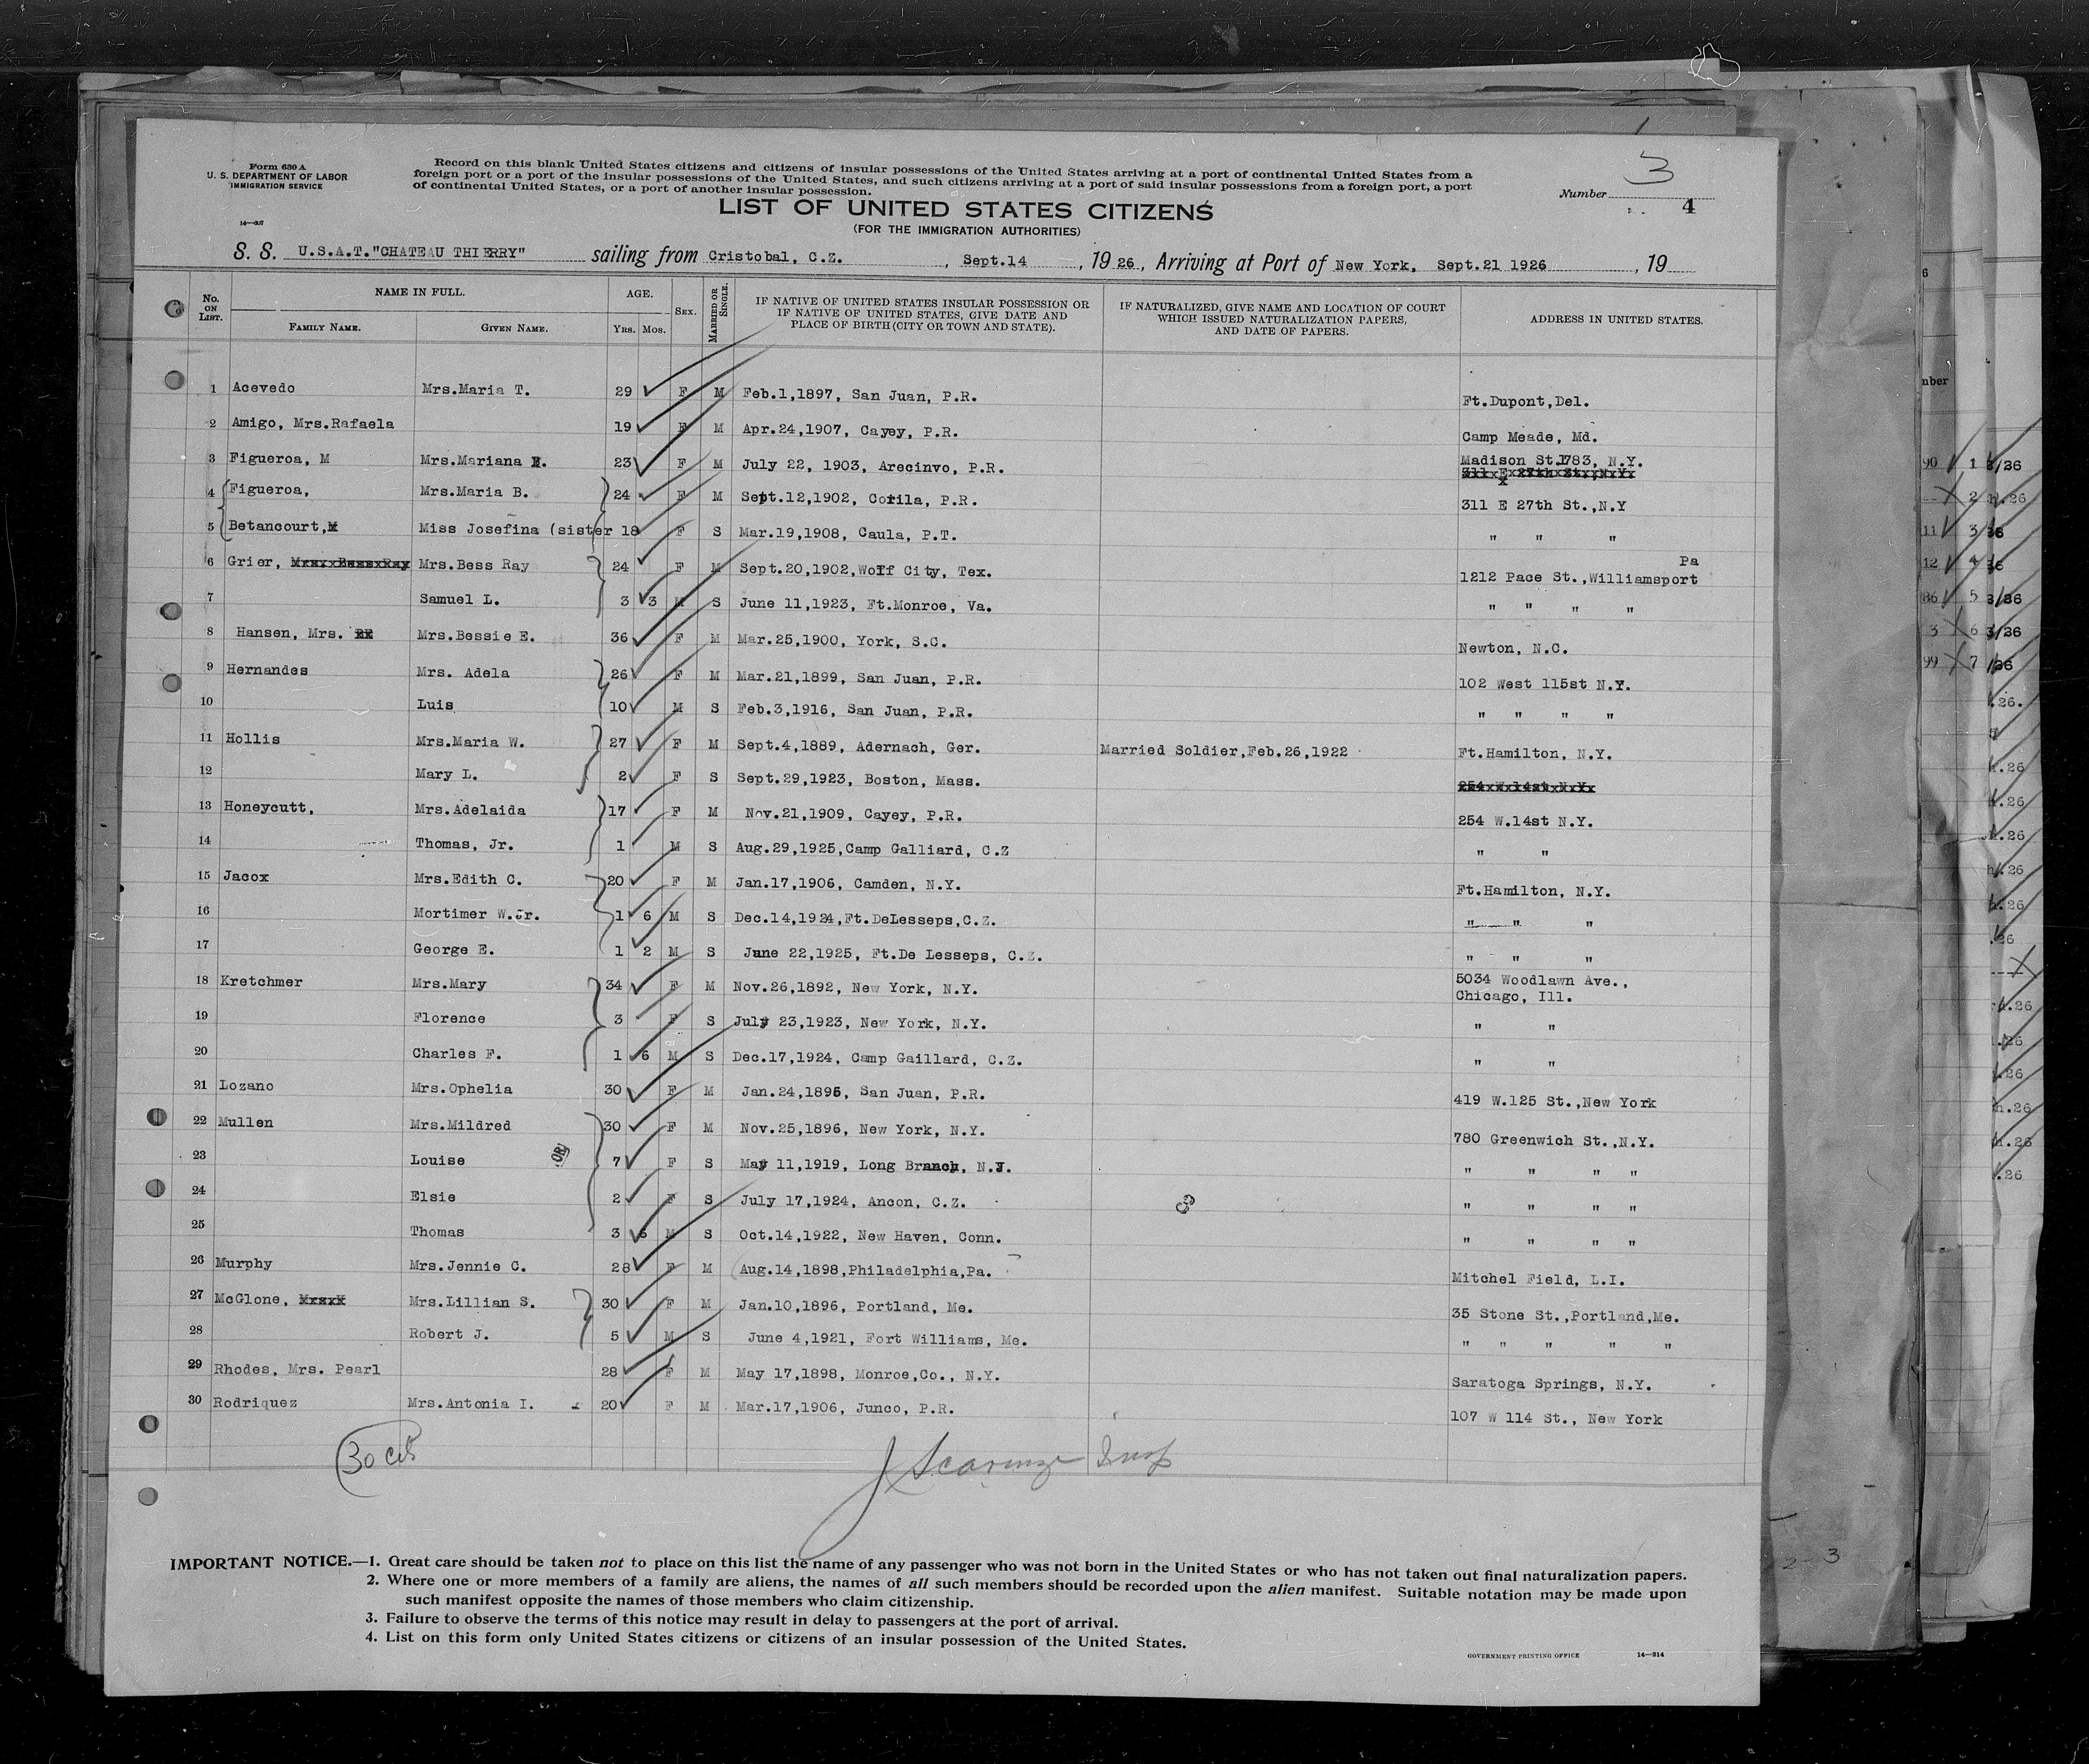 Form 630 A
U. S. DEPARTMENT OF LABOR
IMMIGRATION SERVICE
14—307
Record on this blank United States citizens and citizens of insular possessions of the United States arriving at a port of continental United States from a
foreign port or a port of the insular possessions of the United States, and such citizens arriving at a port of said insular possessions from a foreign port, a port
of continental United States, or a port of another insular possession.
3
Number 4
LIST OF UNITED STATES CITIZENS
(FOR THE IMMIGRATION AUTHORITIES)
S. S. U.S.A.T."CHATEAU THIERRY" sailing from Cristobal, C.Z. , Sept.14 , 19 26, Arriving at Port of New York, Sept.21 1926 , 19
No. ON LIST. NAME IN FULL. FAMILY NAME. GIVEN NAME. AGE. Yrs. Mos. SEX. MARRIED OR SINGLE. IF NATIVE OF UNITED STATES INSULAR POSSESSION OR IF NATIVE OF UNITED STATES, GIVE DATE AND PLACE OF BIRTH (CITY OR TOWN AND STATE). IF NATURALIZED, GIVE NAME AND LOCATION OF COURT WHICH ISSUED NATURALIZATION PAPERS, AND DATE OF PAPERS. ADDRESS IN UNITED STATES.
1 Acevedo Mrs.Maria T. 29 F M Feb.1,1897, San Juan, P.R. Ft.Dupont,Del.
2 Amigo, Mrs.Rafaela 19 F M Apr.24,1907, Cayey, P.R. Camp Meade, Md.
3 Figueroa, M Mrs.Mariana 23 F M July 22, 1903, Arecinvo, P.R. Madison St.1783, N.Y.
4 Figueroa, Mrs.Maria B. 24 F M Sept.12,1902, Corila, P.R. 311 E 27th St.,N.Y
5 Betancourt, Miss Josefina (sister 18 F S Mar.19,1908, Caula, P.T. " " "
6 Grier, Mrs.Bess Ray 24 F M Sept.20,1902,Wolf City, Tex. 1212 Pace St.,Williamsport Pa
7 Samuel L. 3 3 M S June 11,1923, Ft.Monroe, Va. " " " "
8 Hansen, Mrs. Mrs.Bessie E. 36 F M Mar.25,1900, York, S.C. Newton, N.C.
9 Hernandes Mrs. Adela 26 F M Mar.21,1899, San Juan, P.R. 102 West 115st N.Y.
10 Luis 10 M S Feb.3,1916, San Juan, P.R. " " " "
11 Hollis Mrs.Maria W. 27 F M Sept.4,1889, Adernach, Ger. Married Soldier,Feb.26,1922 Ft.Hamilton, N.Y.
12 Mary L. 2 F S Sept.29,1923, Boston, Mass.
13 Honeycutt, Mrs.Adelaida 17 F M Nov.21,1909, Cayey, P.R. 254 W.14st N.Y.
14 Thomas, Jr. 1 M S Aug.29,1925,Camp Galliard, C.Z " "
15 Jacox Mrs.Edith C. 20 F M Jan.17,1906, Camden, N.Y. Ft.Hamilton, N.Y.
16 Mortimer W.Jr. 1 6 M S Dec.14,1924,Ft.DeLesseps,C.Z. " " "
17 George E. 1 2 M S June 22,1925, Ft.De Lesseps, C.Z. " " "
18 Kretchmer Mrs.Mary 34 F M Nov.26,1892, New York, N.Y. 5034 Woodlawn Ave., Chicago, Ill.
19 Florence 3 F S July 23,1923, New York, N.Y. " "
20 Charles F. 1 6 M S Dec.17,1924, Camp Gaillard, C.Z. " "
21 Lozano Mrs.Ophelia 30 F M Jan.24,1895, San Juan, P.R. 419 W.125 St.,New York
22 Mullen Mrs.Mildred 30 F M Nov.25,1896, New York, N.Y. 780 Greenwich St.,N.Y.
23 Louise 7 F S May 11,1919, Long Branch, N.J. " " " "
24 Elsie 2 F S July 17,1924, Ancon, C.Z. " " " "
25 Thomas 3 6 M S Oct.14,1922, New Haven, Conn. " " " "
26 Murphy Mrs.Jennie C. 28 F M Aug.14,1898,Philadelphia,Pa. Mitchel Field, L.I.
27 McGlone, Mrs.Lillian S. 30 F M Jan.10,1896, Portland, Me. 35 Stone St.,Portland,Me.
28 Robert J. 5 M S June 4,1921, Fort Williams, Me. " " " " "
29 Rhodes, Mrs. Pearl 28 F M May 17,1898, Monroe,Co., N.Y. Saratoga Springs, N.Y.
30 Rodriquez Mrs.Antonia I. 20 F M Mar.17,1906, Junco, P.R. 107 W 114 St., New York
30 J Insp
IMPORTANT NOTICE.—1. Great care should be taken not to place on this list the name of any passenger who was not born in the United States or who has not taken out final naturalization papers.
2. Where one or more members of a family are aliens, the names of all such members should be recorded upon the alien manifest. Suitable notation may be made upon
such manifest opposite the names of those members who claim citizenship.
3. Failure to observe the terms of this notice may result in delay to passengers at the port of arrival.
4. List on this form only United States citizens or citizens of an insular possession of the United States.
GOVERNMENT PRINTING OFFICE 14—314